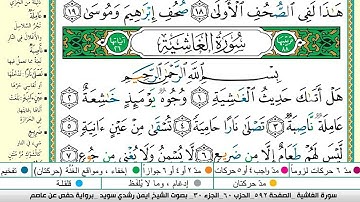 هَٰذَا لَفِي ٱلصُّحُفِ ٱلْأُولَىٰ ١٨ صُحُفِ إِبْرَٰهِيمَ وَمُوسَىٰ ١٩
سُورَةُ الغَاشِيَةِ
بِسْمِ ٱللَّهِ ٱلرَّحْمَٰنِ ٱلرَّحِيمِ
هَلْ أَتَىٰكَ حَدِيثُ ٱلْغَٰشِيَةِ ١ وُجُوهٌ يَوْمَئِذٍ خَٰشِعَةٌ ٢
عَامِلَةٌ نَّاصِبَةٌ ٣ تَصْلَىٰ نَارًا حَامِيَةً ٤ تُسْقَىٰ مِنْ عَيْنٍ ءَانِيَةٍ ٥
لَّيْسَ لَهُمْ طَعَامٌ إِلَّا مِن ضَرِيعٍ ٦ لَّا يُسْمِنُ وَلَا يُغْنِي مِن جُوعٍ ٧
مدّ ٦ حركات لزوماً مدّ ٢ أو ٤ أو ٦ جوازاً إخفاء، ومواقع الغُنَّة (حركتان) تفخيم
مدّ واجب ٤ أو ٥ حركات مدّ حركتان إدغام، وما لا يُلفَظ قلقلة
سورة الغاشية _ الصفحة ٥٩٢ _ الحزب ٦٠ _ الجزء ٣٠ _ بصوت الشيخ أيمن رشدي سويد _ برواية حفص عن عاصم